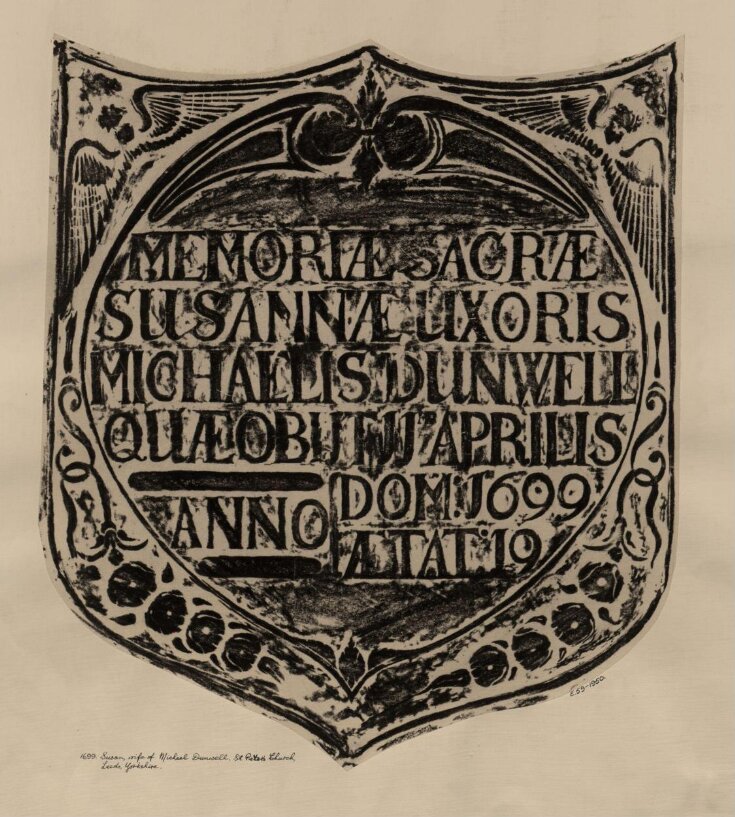 MEMORIÆ SACRÆ
SUSANNÆ UXORIS
MICHAELIS DUNWELL
QUÆ OBIJT JJ° APRILIS
ANNO DOM: J699
ÆTAT: 19
E.59-1950.
1699. Susan, wife of Michael Dunwell. St Peter's Church,
Leeds, Yorkshire.